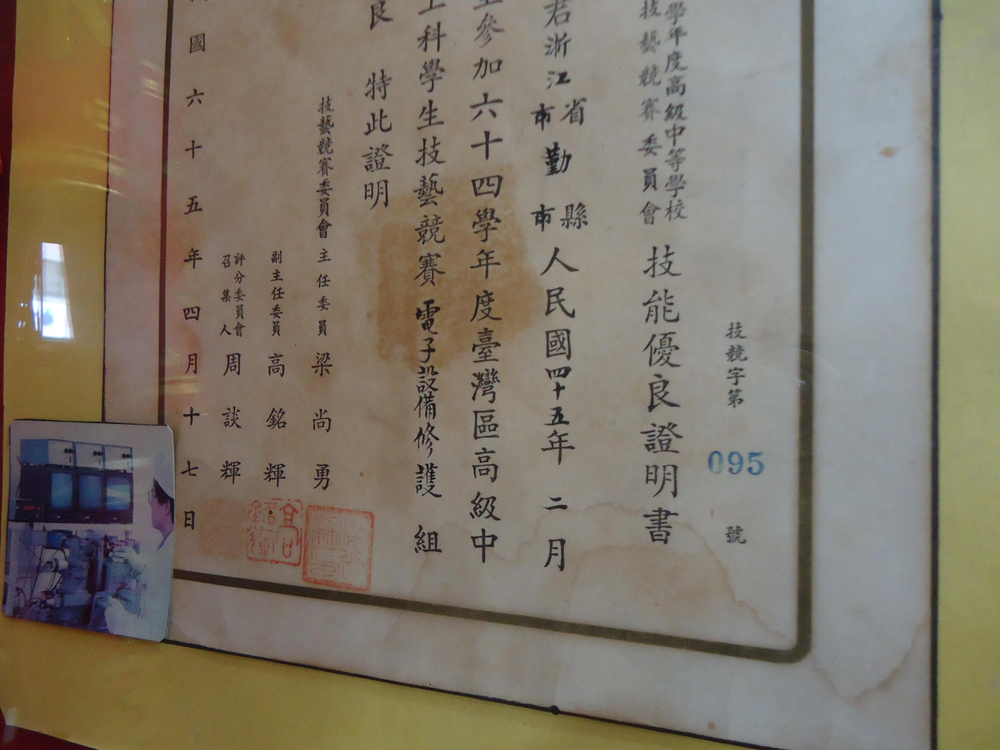 技競字第 095 號
學年度高級中等學校
技藝競賽委員會 技能優良證明書
君浙江省市勤縣市人民國四十五年二月
參加六十四學年度臺灣區高級中
工科學生技藝競賽電子設備修護組
良 特此證明
技藝競賽委員會主任委員 梁尚勇
副主任委員 高銘輝
評分委員會召集人 周談輝
國六十五年四月十七日